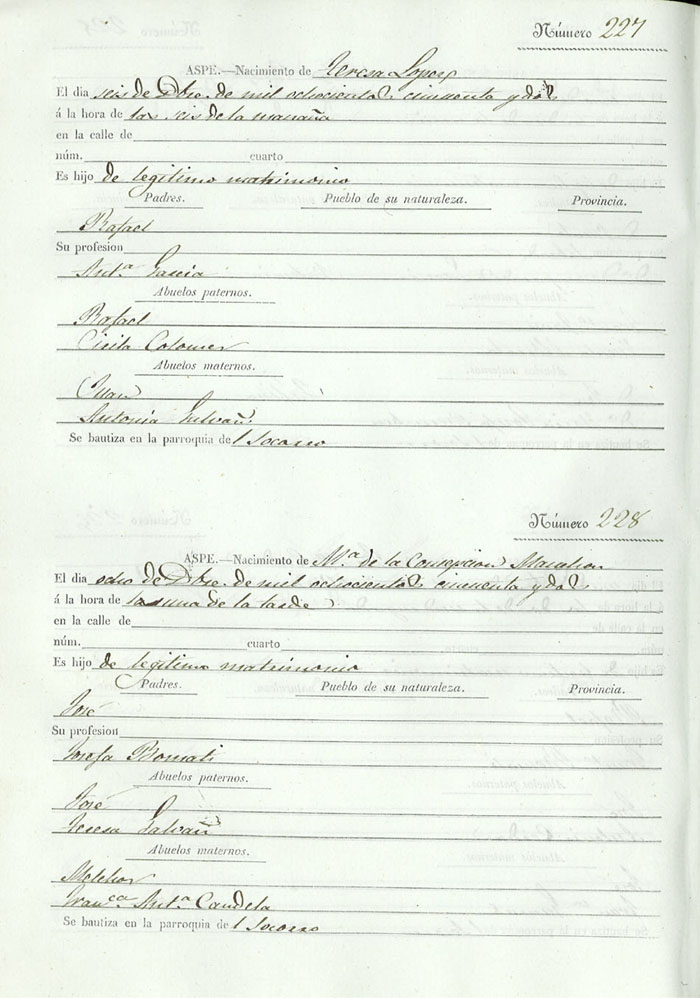 Número 227
ASPE.—Nacimiento de Teresa Lopez
El dia seis de Dbre. de mil ochocientos cincuenta y dos
á la hora de las seis de la mañana
en la calle de
núm. cuarto
Es hijo de legitimo matrimonio
Padres. Pueblo de su naturaleza. Provincia.
Rafael
Su profesion
Ant.ª Garcia
Abuelos paternos.
Rafael
Cicila Colomer
Abuelos maternos.
Juan
Antonia Galvañ
Se bautiza en la parroquia del Socorro
Número 228
ASPE.—Nacimiento de M.ª de la Concepcion
El dia ocho de Dbre. de mil ochocientos cincuenta y dos
á la hora de la una de la tarde
en la calle de
núm. cuarto
Es hijo de legitimo matrimonio
Padres. Pueblo de su naturaleza. Provincia.
José
Su profesion
Josefa
Abuelos paternos.
José
Teresa Galvañ
Abuelos maternos.
Melchor
Fran.ca Ant.ª Candela
Se bautiza en la parroquia del Socorro